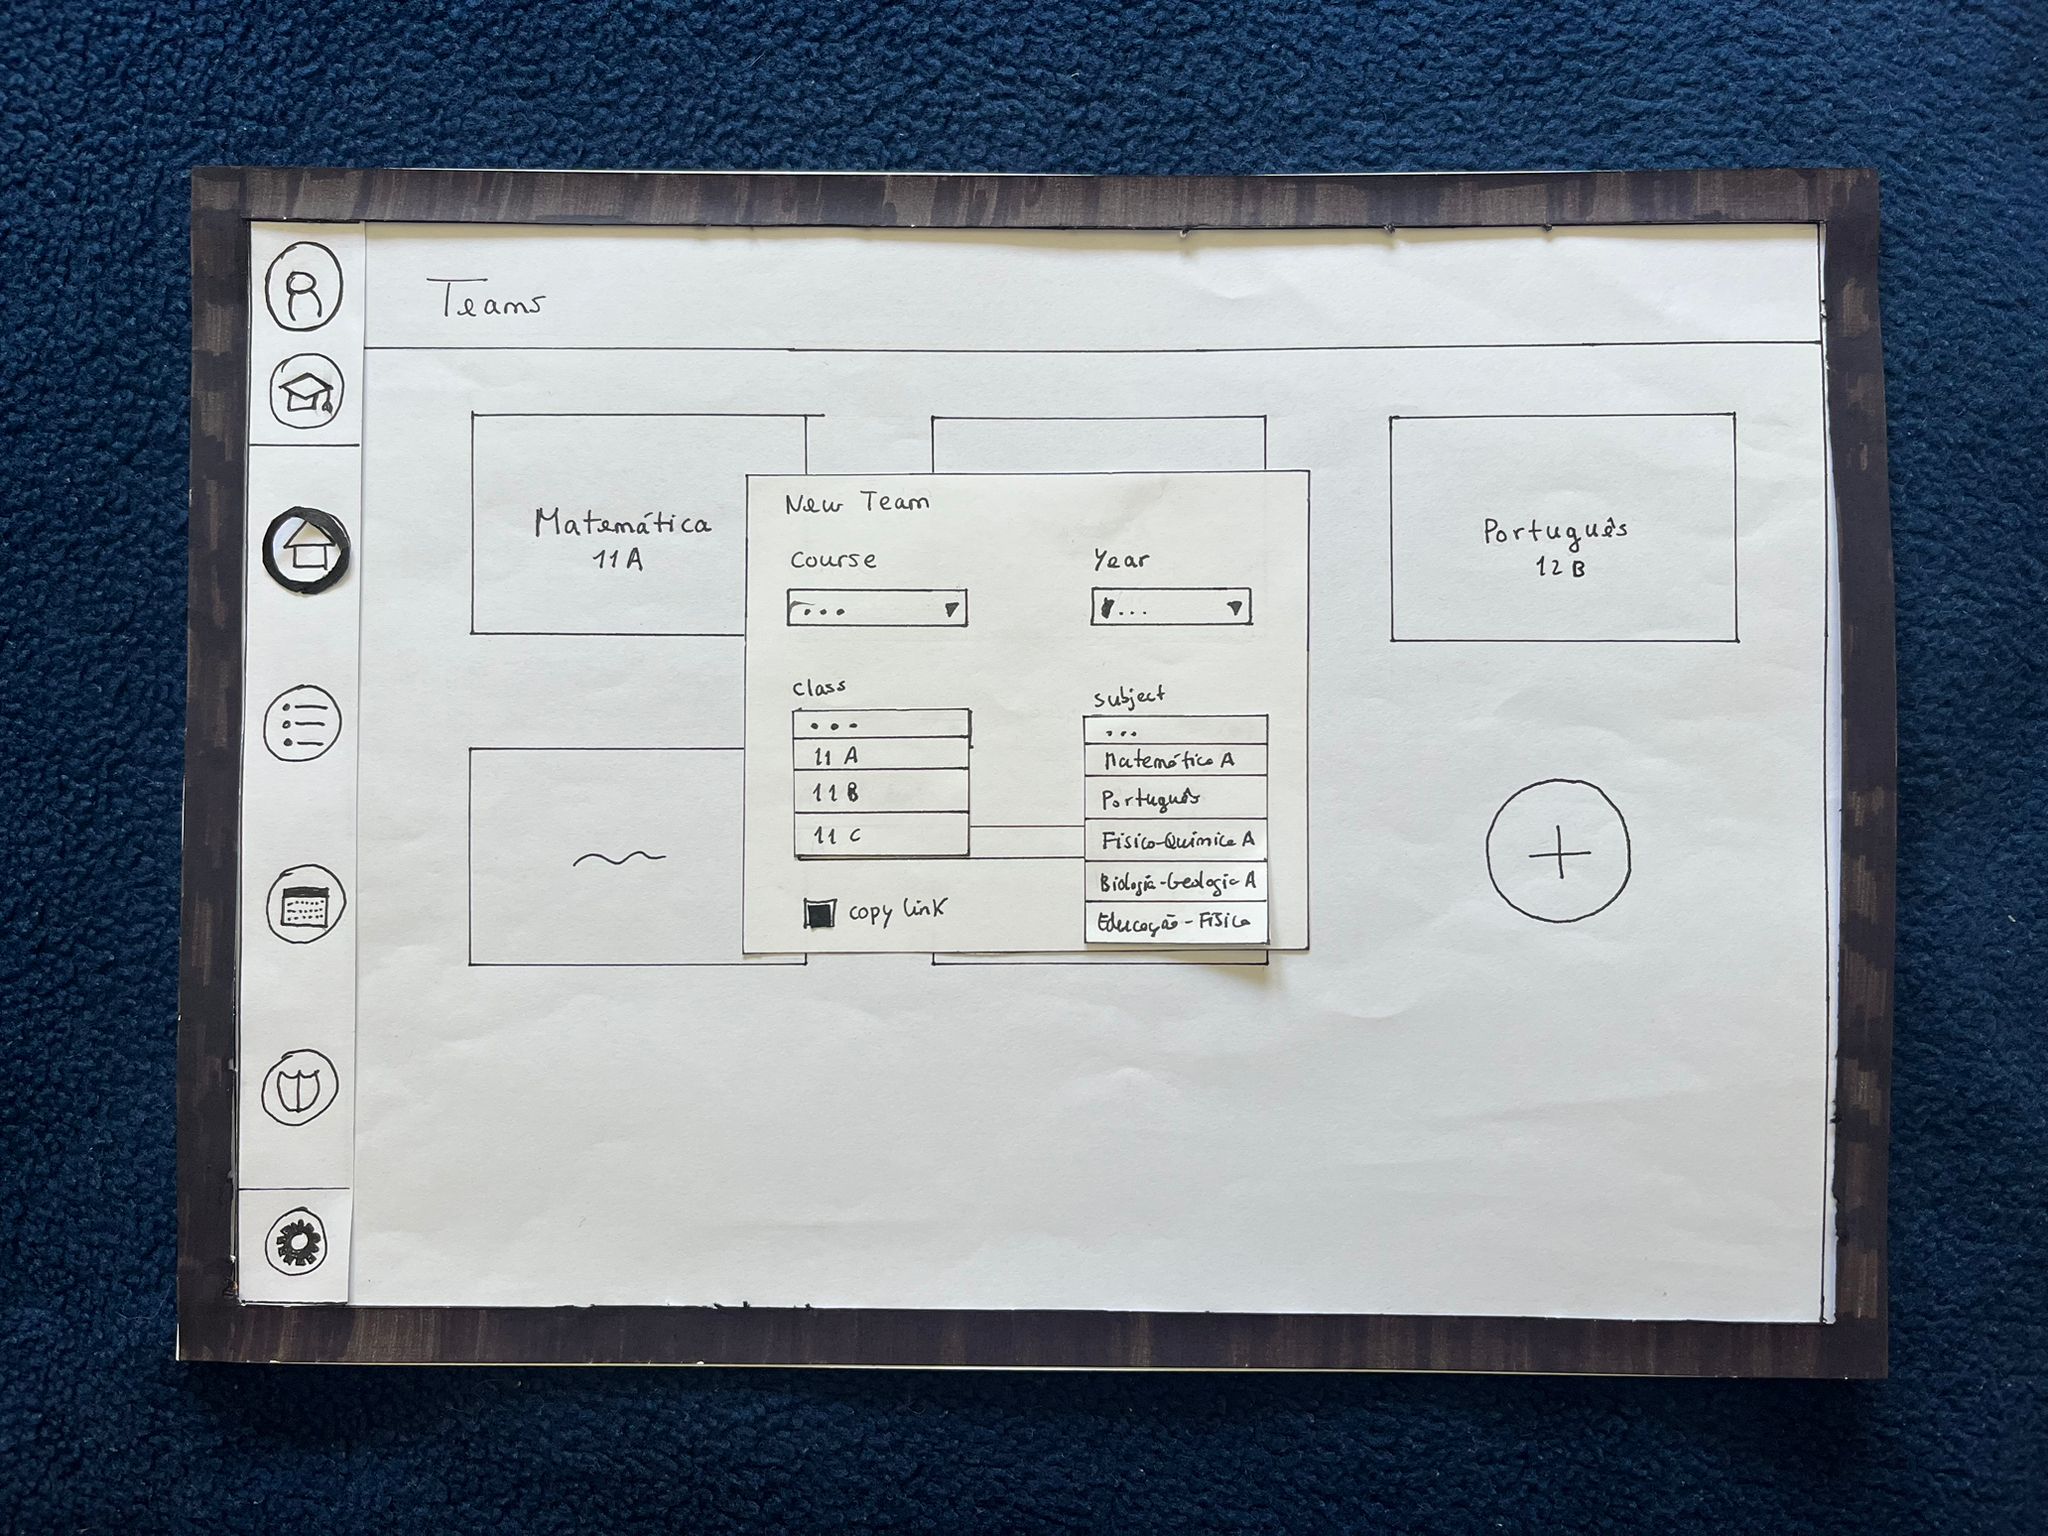 Teams
Matemática
11 A
Português
12 B
New Team
Course
Year
...
...
Class
Subject
...
11 A
11 B
11 C
...
Matemática A
Português
Físico-Química A
Biologia-Geologia A
Educação-Física
copy link